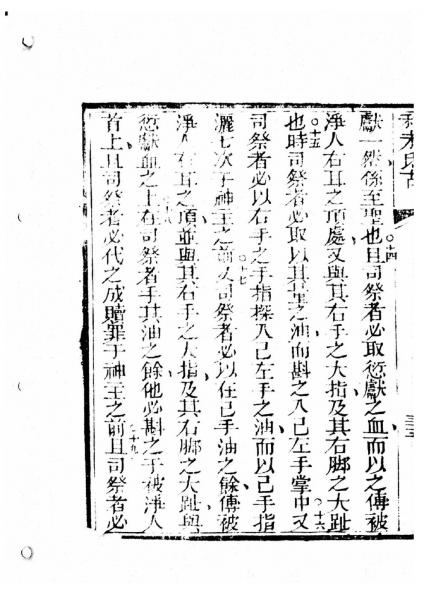 獻一然係至聖也○十四且司祭者必取愆獻之血而以之傅被
淨人右耳之頂處又與其右手之大指及其右脚之大趾
也○十五時司祭者必取以其之油而斟之入己左手掌中○十六又
司祭者必以右手之手指探入己左手之油而以己手指
灑七次于神主之前○十七又司祭者必以在己手油之餘傅被
淨人右耳之頂並與其右手之大指及其右脚之大趾與
愆獻血之上在司祭者手其油之餘他必斟之于被淨人
首上且司祭者必代之成贖罪于神主之前○十九且司祭者必